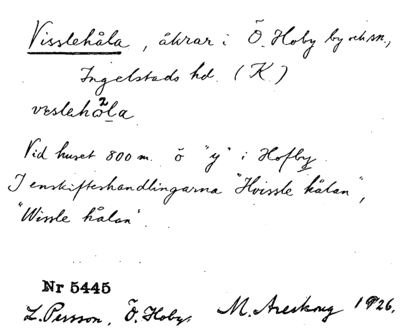 Visslehåla, åkrar i Ö. Hoby by ock sn,
Ingelstads hd. (K)
veslehola
Vid huset 800 m. ö "y" i Hofby
I enskifteshandlingarna "Hvissle hålan",
"Wissle hålan".
Nr 5445
L. Persson, Ö. Hoby. M. Areskoug 1926.